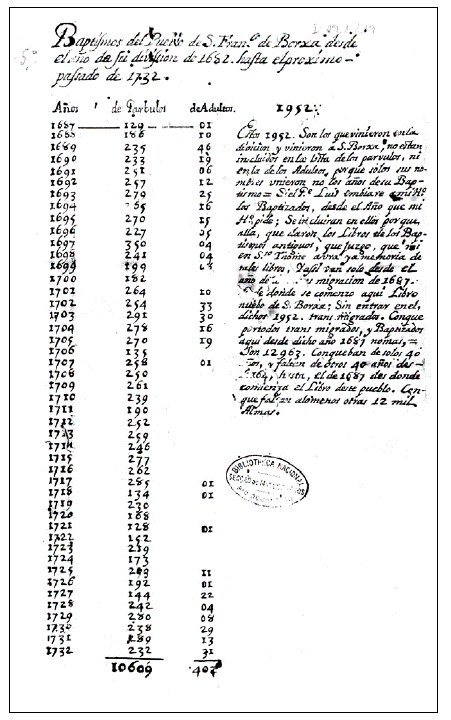 Baptismos del Pueblo de S. Fran.co de Borxa desde
el año de su division de 1682. hasta el proximo
passado de 1732.
Años de Parbulos de Adultos.
1687 129 01
1688 186 10
1689 235 46
1690 233 19
1691 251 06
1692 257 12
1693 279 25
1694 16
1695 270 15
1696 227 05
1697 350 04
1698 241 04
1699 199
1700 182
1701 264 10
1702 254 33
1703 291 30
1704 278 16
1705 270 19
1706 135
1707 258 01
1708 250
1709 261
1710 239
1711 190
1712 252
1713 259
1714 246
1715 277
1716 262
1717 285 01
1718 134 01
1719 230
1720 188
1721 128 01
1722 152
1723 219
1724 173
1725 11
1726 192 01
1727 144 22
1728 242 04
1729 280 08
1730 238 29
1731 289 13
1732 232 31
10609 407
1952.
Estos 1952. Son los que vinieron en la
division y vinieron a S. Borxa, no estan
incluidos en la lista de los parvulos, ni
en la de los Adultos, porque solos sus nom-
bres vinieron no los años de su Bap-
tismo = Si el P.e Luis embiare
los Baptizados, desde el Año que mi
H.o pide; Se incluiran en ellos porque
alla, quedaron los Libros de los Bap-
tismos antiguos, que juzgo, que
en S.to Thome avra ya memoria de
tales libros, solo desde el
año de migracion de 1687.
de donde se comenzo aqui Libro
nuebo de S. Borxa; Sin entrar en el,
dichos 1952. transmigrados. Conque
por todos transmigrados, y Baptizados
aqui desde dicho año 1687 nomas,=
Son 12963. Conque ban de solos 40
años, y faltan de otros 40 años des-
hasta, el de 1687 de donde
comienza el Libro deste pueblo. Con-
que faltan alomenos otras 12 mil
Almas.
BIBLIOTHECA NACIONAL